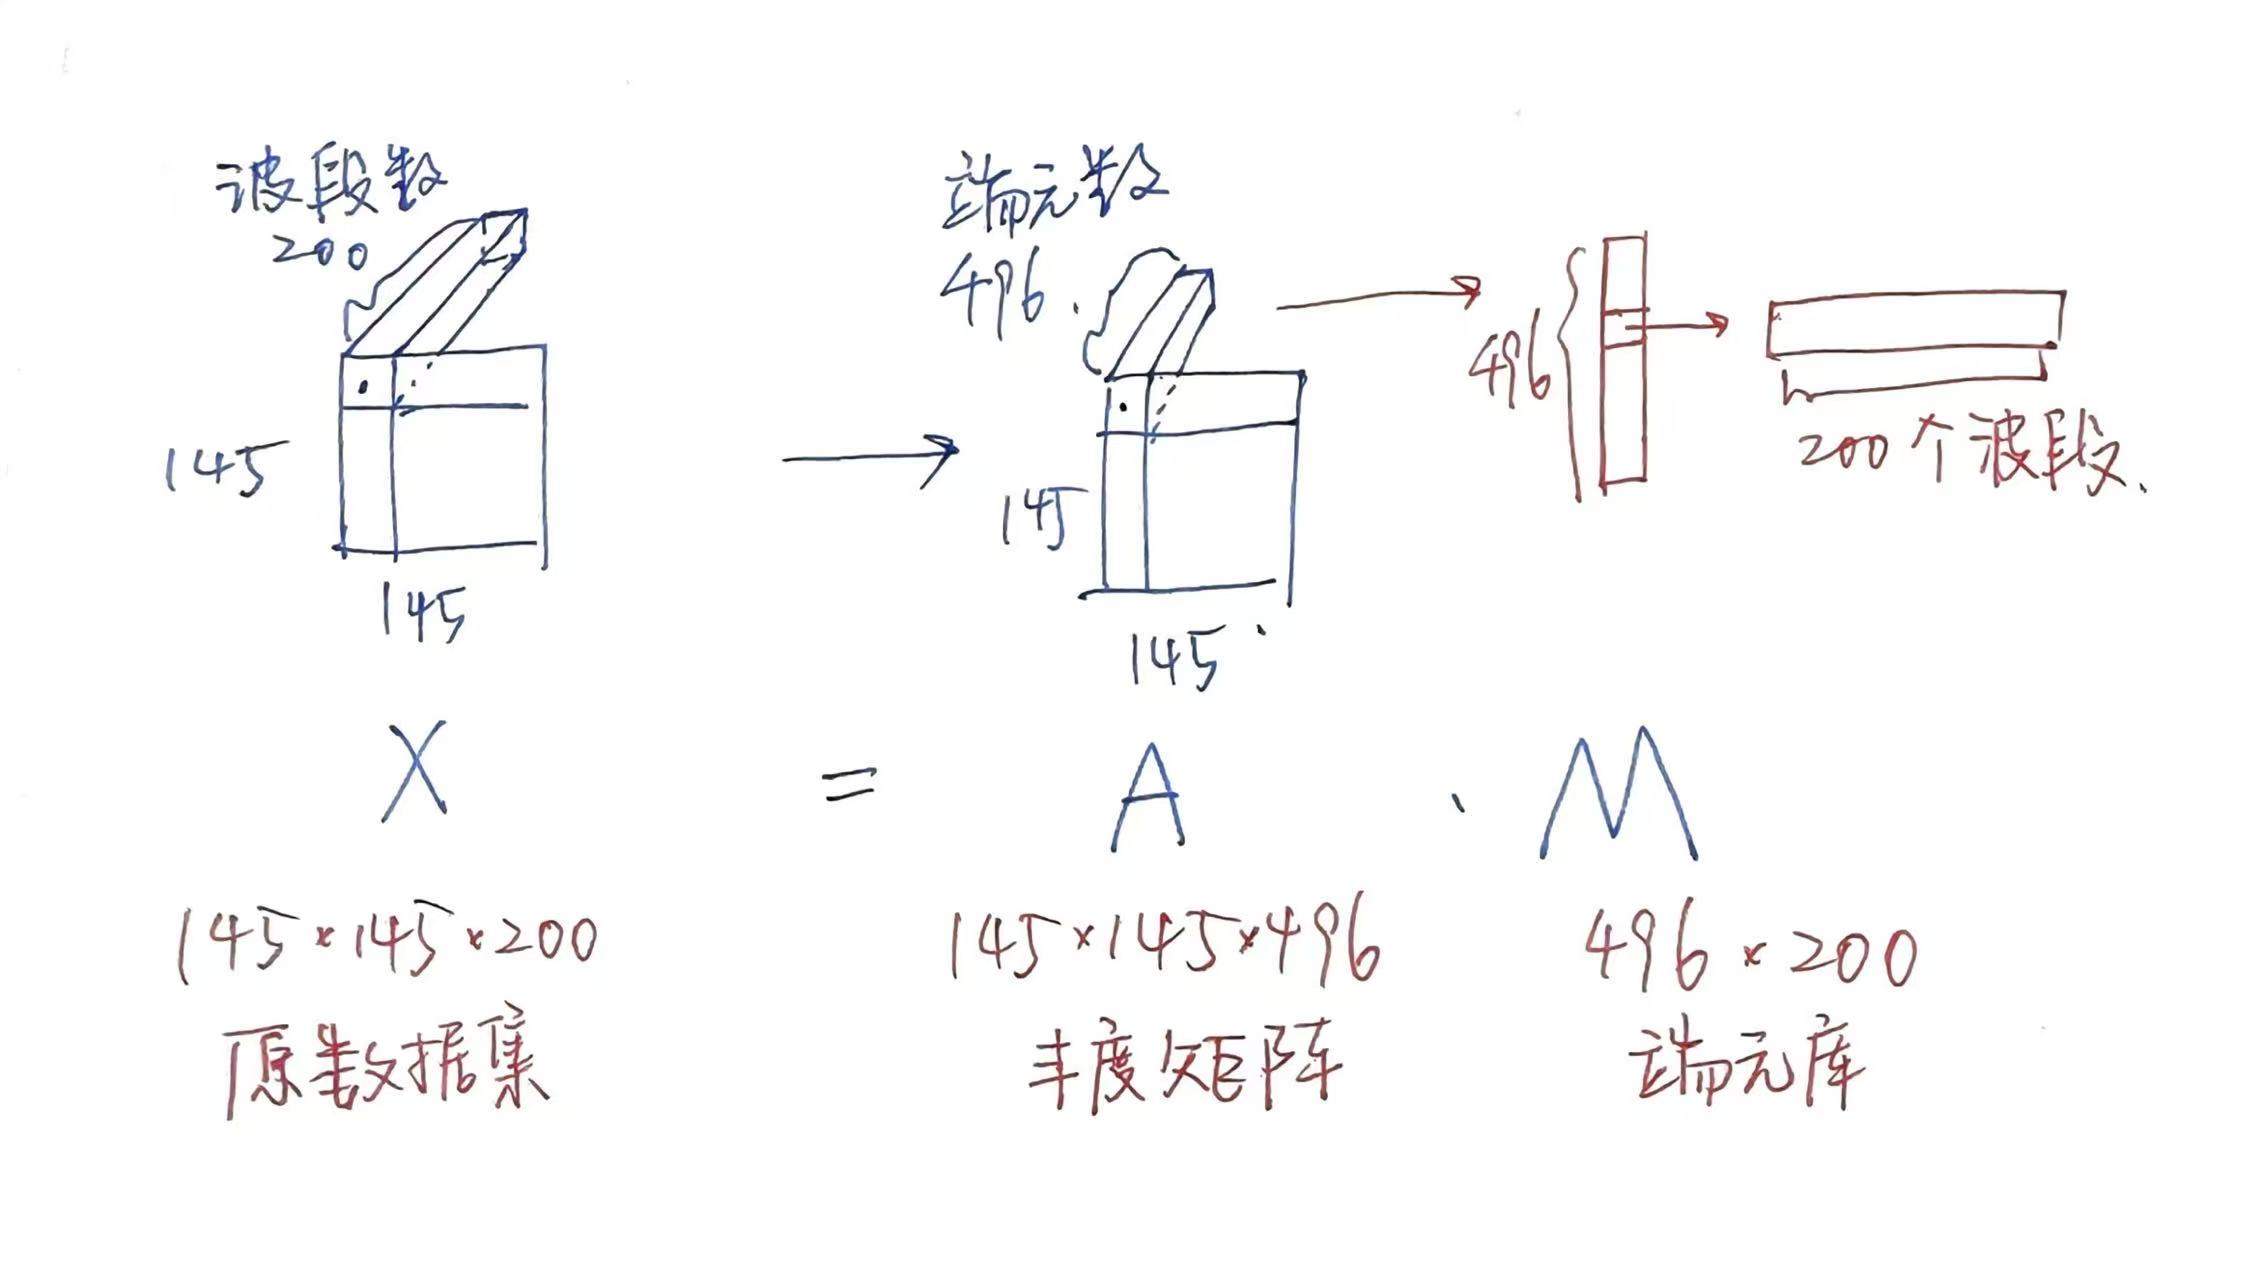 波段数
200
145
145
端元数
496.
145
145
496
200个波段.
X = A · M
145×145×200
原数据集
145×145×496
丰度矩阵
496×200
端元库